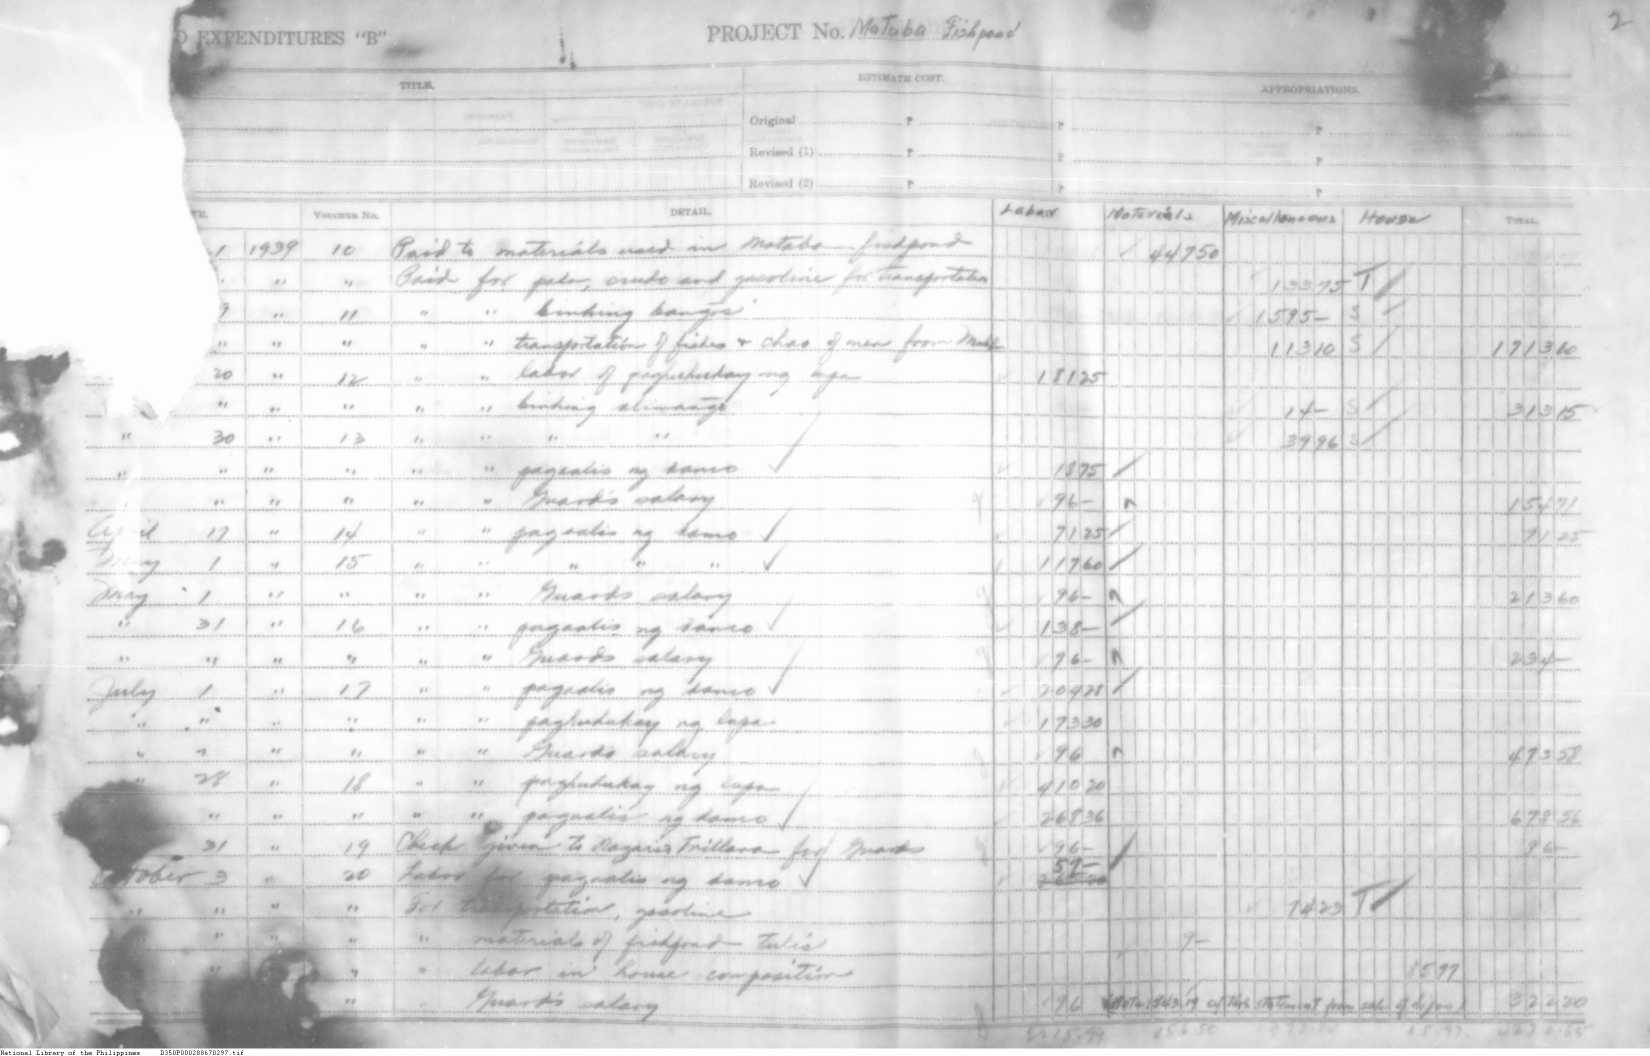 D EXPENDITURES "B" PROJECT No. Matuba Fishpond 2
TITLE. ESTIMATE COST. APPROPRIATIONS.
Original P P P
Revised (1) P P P
Revised (2) P P P
TE. VOUCHER No. DETAIL. Labor Materials Miscellaneous House TOTAL.
1 1939 10 Paid to materials used in Matuba fishpond 447 50
" " Paid for crudo and gasoline for transportation 133 75 T
" 11 " " binhing bangos 1595 – S
" " " " " transportation of fishes & of men from 113 10 S
20 " 12 " " labor of paghuhukay ng lupa 181 25
" " " " " binhing 14 – S 313 15
" 30 " 13 " " " " 39 96 S
" " " " " " pagaalis ng damo 18 75
" " " " " Guard's salary 96 – 154 71
April 17 " 14 " " pagaalis ng damo 71 25 71 25
May 1 " 15 " " " " " 117 60
May 1 " " " " Guards salary 96 – 213 60
" 31 " 16 " " pagaalis ng damo 138 –
" " " " " " Guards salary 96 – 234 –
July 1 " 17 " " pagaalis ng damo 209 28
" " " " " " paghuhukay ng lupa 173 30
" " " " " " Guards salary 96 473 58
" 28 " 18 " " paghuhukay ng lupa 410 20
" " " " " pagaalis ng damo 268 36 678 56
31 " 19 Check given to Trillana for Guards 96 – 96 –
October 3 " 20 Labor for pagaalis ng damo 59 –
" " " " For transportation, gasoline 74 23 T
" " " " materials of fishpond 9 –
" " " labor in house composition 15 97
" " Guard's salary 96 of this statement from sale of
National Library of the Philippines D350P000288670297.tif